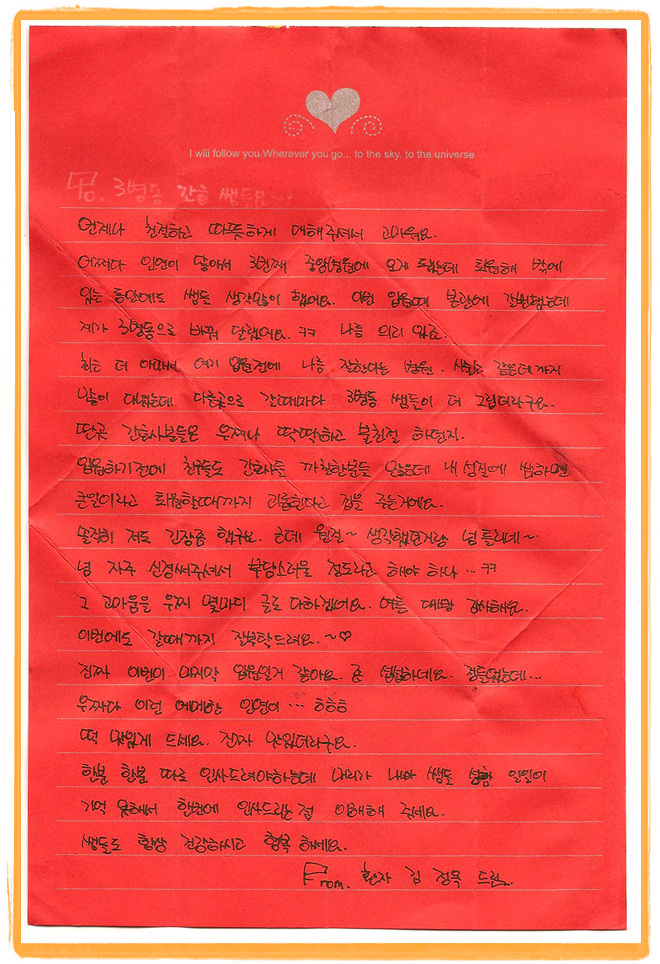 I will follow you.Wherever you go... to the sky, to the universe.
To. 3병동 간호 쌤들요...
언제나 친절하고 따뜻하게 대해주셔서 고마워요.
어쩌다 인연이 닿아서 3번째 중앙병원에 오게 됐는데 퇴원해 밖에
있는 동안에도 쌤들 생각많이 했어요. 이번 입원때 본관에 간원했는데
제가 3병동으로 바꿔 달랬어요. ㅋㅋ 나름 의리 있죠.
더 여기 입원전에 나름 잘한다는 병원. 같은데까지
많이 다른곳으로 갈때마다 3병동 쌤들이 더 그립더라구요.
딴곳 간호사분들은 우찌나 딱딱하고 불친절 하던지.
입원하기전에 친구들도 간호사들 까칠한분들 많은데 내 성질에 쌈하면
큰일이라고 퇴원할때까지 겁을 주는거에요.
솔직히 저도 긴장좀 했구요. 근데 웬걸~ 생각했던거랑 넘 틀리데~
넘 자주 신경써주셔서 부담스러울 정도라고 해야 하나 ... ㅋㅋ
그 고마움을 우찌 몇마디 글로 다하겠어요. 여튼 대빵 감사해요.
이번에도 갈때까지 잘부탁드려요.~♡
진짜 이번이 마지막 입원일거 같아요. 좀 섭섭하네요. 정들었는데...
우짜다 이런 애매한 인연이 ... ㅎㅎㅎ
떡 맛있게 드세요. 진짜 맛있더라구요.
한분 한분 따로 인사드려야하는데 머리가 나빠 쌤들 성함 일일이
기억 못해서 한번에 인사드리는점 이해해 주세요.
쌤들도 항상 건강하시고 행복 하세요.
From. 환자 김 정욱 드림.